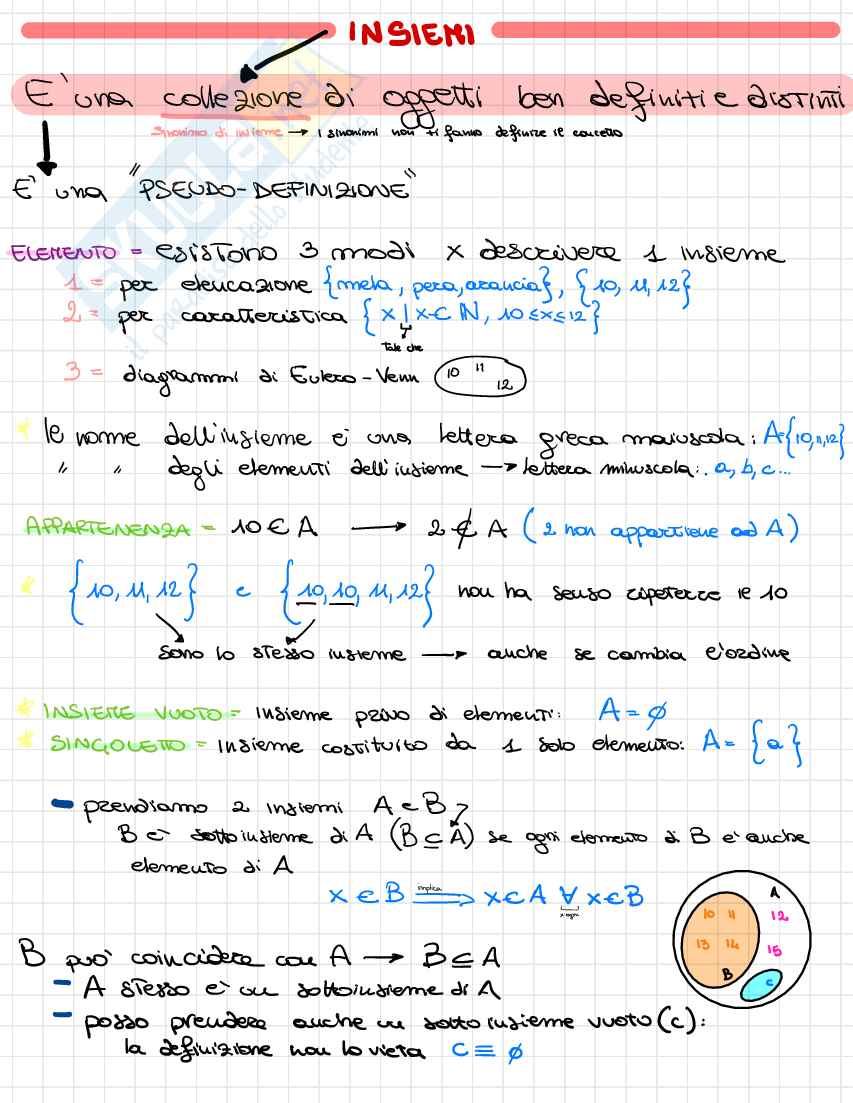 INSIEMI
E' una collezione di oggetti ben definiti e distinti
Sinonimo di insieme → i sinonimi non ti fanno definire il concetto
E' una "PSEUDO-DEFINIZIONE"
ELEMENTO = esistono 3 modi x descrivere 1 insieme
1 = per elencazione {mela, pera, arancia}, {10, 11, 12}
2 = per caratteristica {x | x ∈ ℕ, 10 ≤ x ≤ 12}
tale che
3 = diagrammi di Eulero-Venn 10 11 12
il nome dell'insieme è una lettera greca maiuscola: A={10,11,12}
" " degli elementi dell'insieme → lettera minuscola: a, b, c...
APPARTENENZA = 10 ∈ A → 2 ∉ A (2 non appartiene ad A)
{10, 11, 12} e {10, 10, 11, 12} non ha senso ripetere il 10
sono lo stesso insieme → anche se cambia l'ordine
INSIEME VUOTO = insieme privo di elementi: A = ∅
SINGOLETTO = insieme costituito da 1 solo elemento: A = {a}
prendiamo 2 insiemi A e B
B è sottoinsieme di A (B ⊆ A) se ogni elemento di B è anche
elemento di A
x ∈ B ⟹ x ∈ A ∀ x ∈ B
implica
x ogni
A
10 11 12
13 14 15
B
C
B può coincidere con A → B ⊆ A
A stesso è un sottoinsieme di A
posso prendere anche un sottoinsieme vuoto (c):
la definizione non lo vieta C ≡ ∅
SKUOLA.net
il paradiso dello studente